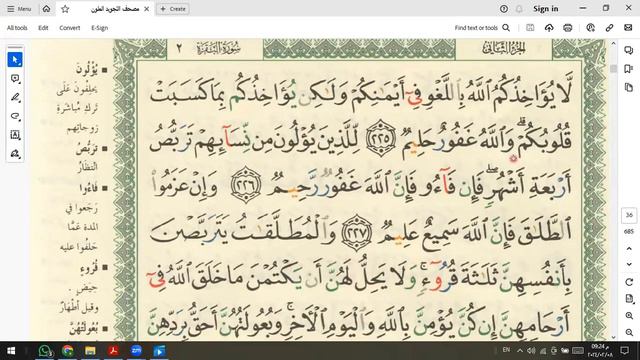 Menu
مصحف التجويد الملون
+ Create
Sign in
All tools
Edit
Convert
E-Sign
Find text or tools
الجزء الثاني
سورة البقرة
٢
لَّا يُؤَاخِذُكُمُ اللَّهُ بِاللَّغْوِ فِي أَيْمَانِكُمْ وَلَٰكِن يُؤَاخِذُكُم بِمَا كَسَبَتْ
قُلُوبُكُمْ ۗ وَاللَّهُ غَفُورٌ حَلِيمٌ ٢٢٥ لِّلَّذِينَ يُؤْلُونَ مِن نِّسَائِهِمْ تَرَبُّصُ
أَرْبَعَةِ أَشْهُرٍ ۖ فَإِن فَاءُو فَإِنَّ اللَّهَ غَفُورٌ رَّحِيمٌ ٢٢٦ وَإِنْ عَزَمُوا
الطَّلَاقَ فَإِنَّ اللَّهَ سَمِيعٌ عَلِيمٌ ٢٢٧ وَالْمُطَلَّقَاتُ يَتَرَبَّصْنَ
بِأَنفُسِهِنَّ ثَلَاثَةَ قُرُوءٍ ۚ وَلَا يَحِلُّ لَهُنَّ أَن يَكْتُمْنَ مَا خَلَقَ اللَّهُ فِي
أَرْحَامِهِنَّ إِن كُنَّ يُؤْمِنَّ بِاللَّهِ وَالْيَوْمِ الْآخِرِ ۚ وَبُعُولَتُهُنَّ أَحَقُّ بِرَدِّهِنَّ
يُؤْلُونَ
يحلِفونَ عَلَى
تركِ مُباشرةِ
زوجاتِهم
تَرَبُّصُ
انتظارُ
فَاءُوا
رَجَعوا في
المدةِ عَمَّا
حَلَفُوا عليه
قُرُوءٍ
حِيَضٍ
وقيل أطهارٌ
بُعُولَتُهُنَّ
36
685
EN
09:24 م
٢٠٢٤/٠٢/٠٨